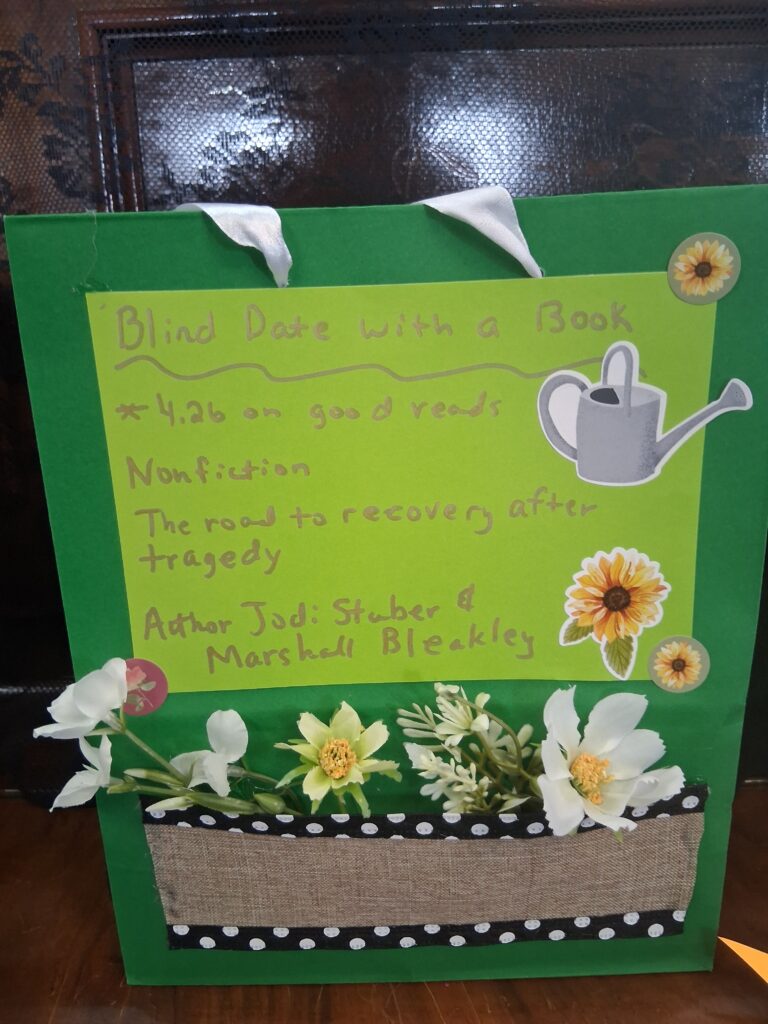 Blind Date with a Book
* 4.26 on good reads
Nonfiction
The road to recovery after
tragedy
Author Jodi Stuber &
Marshall Bleakley